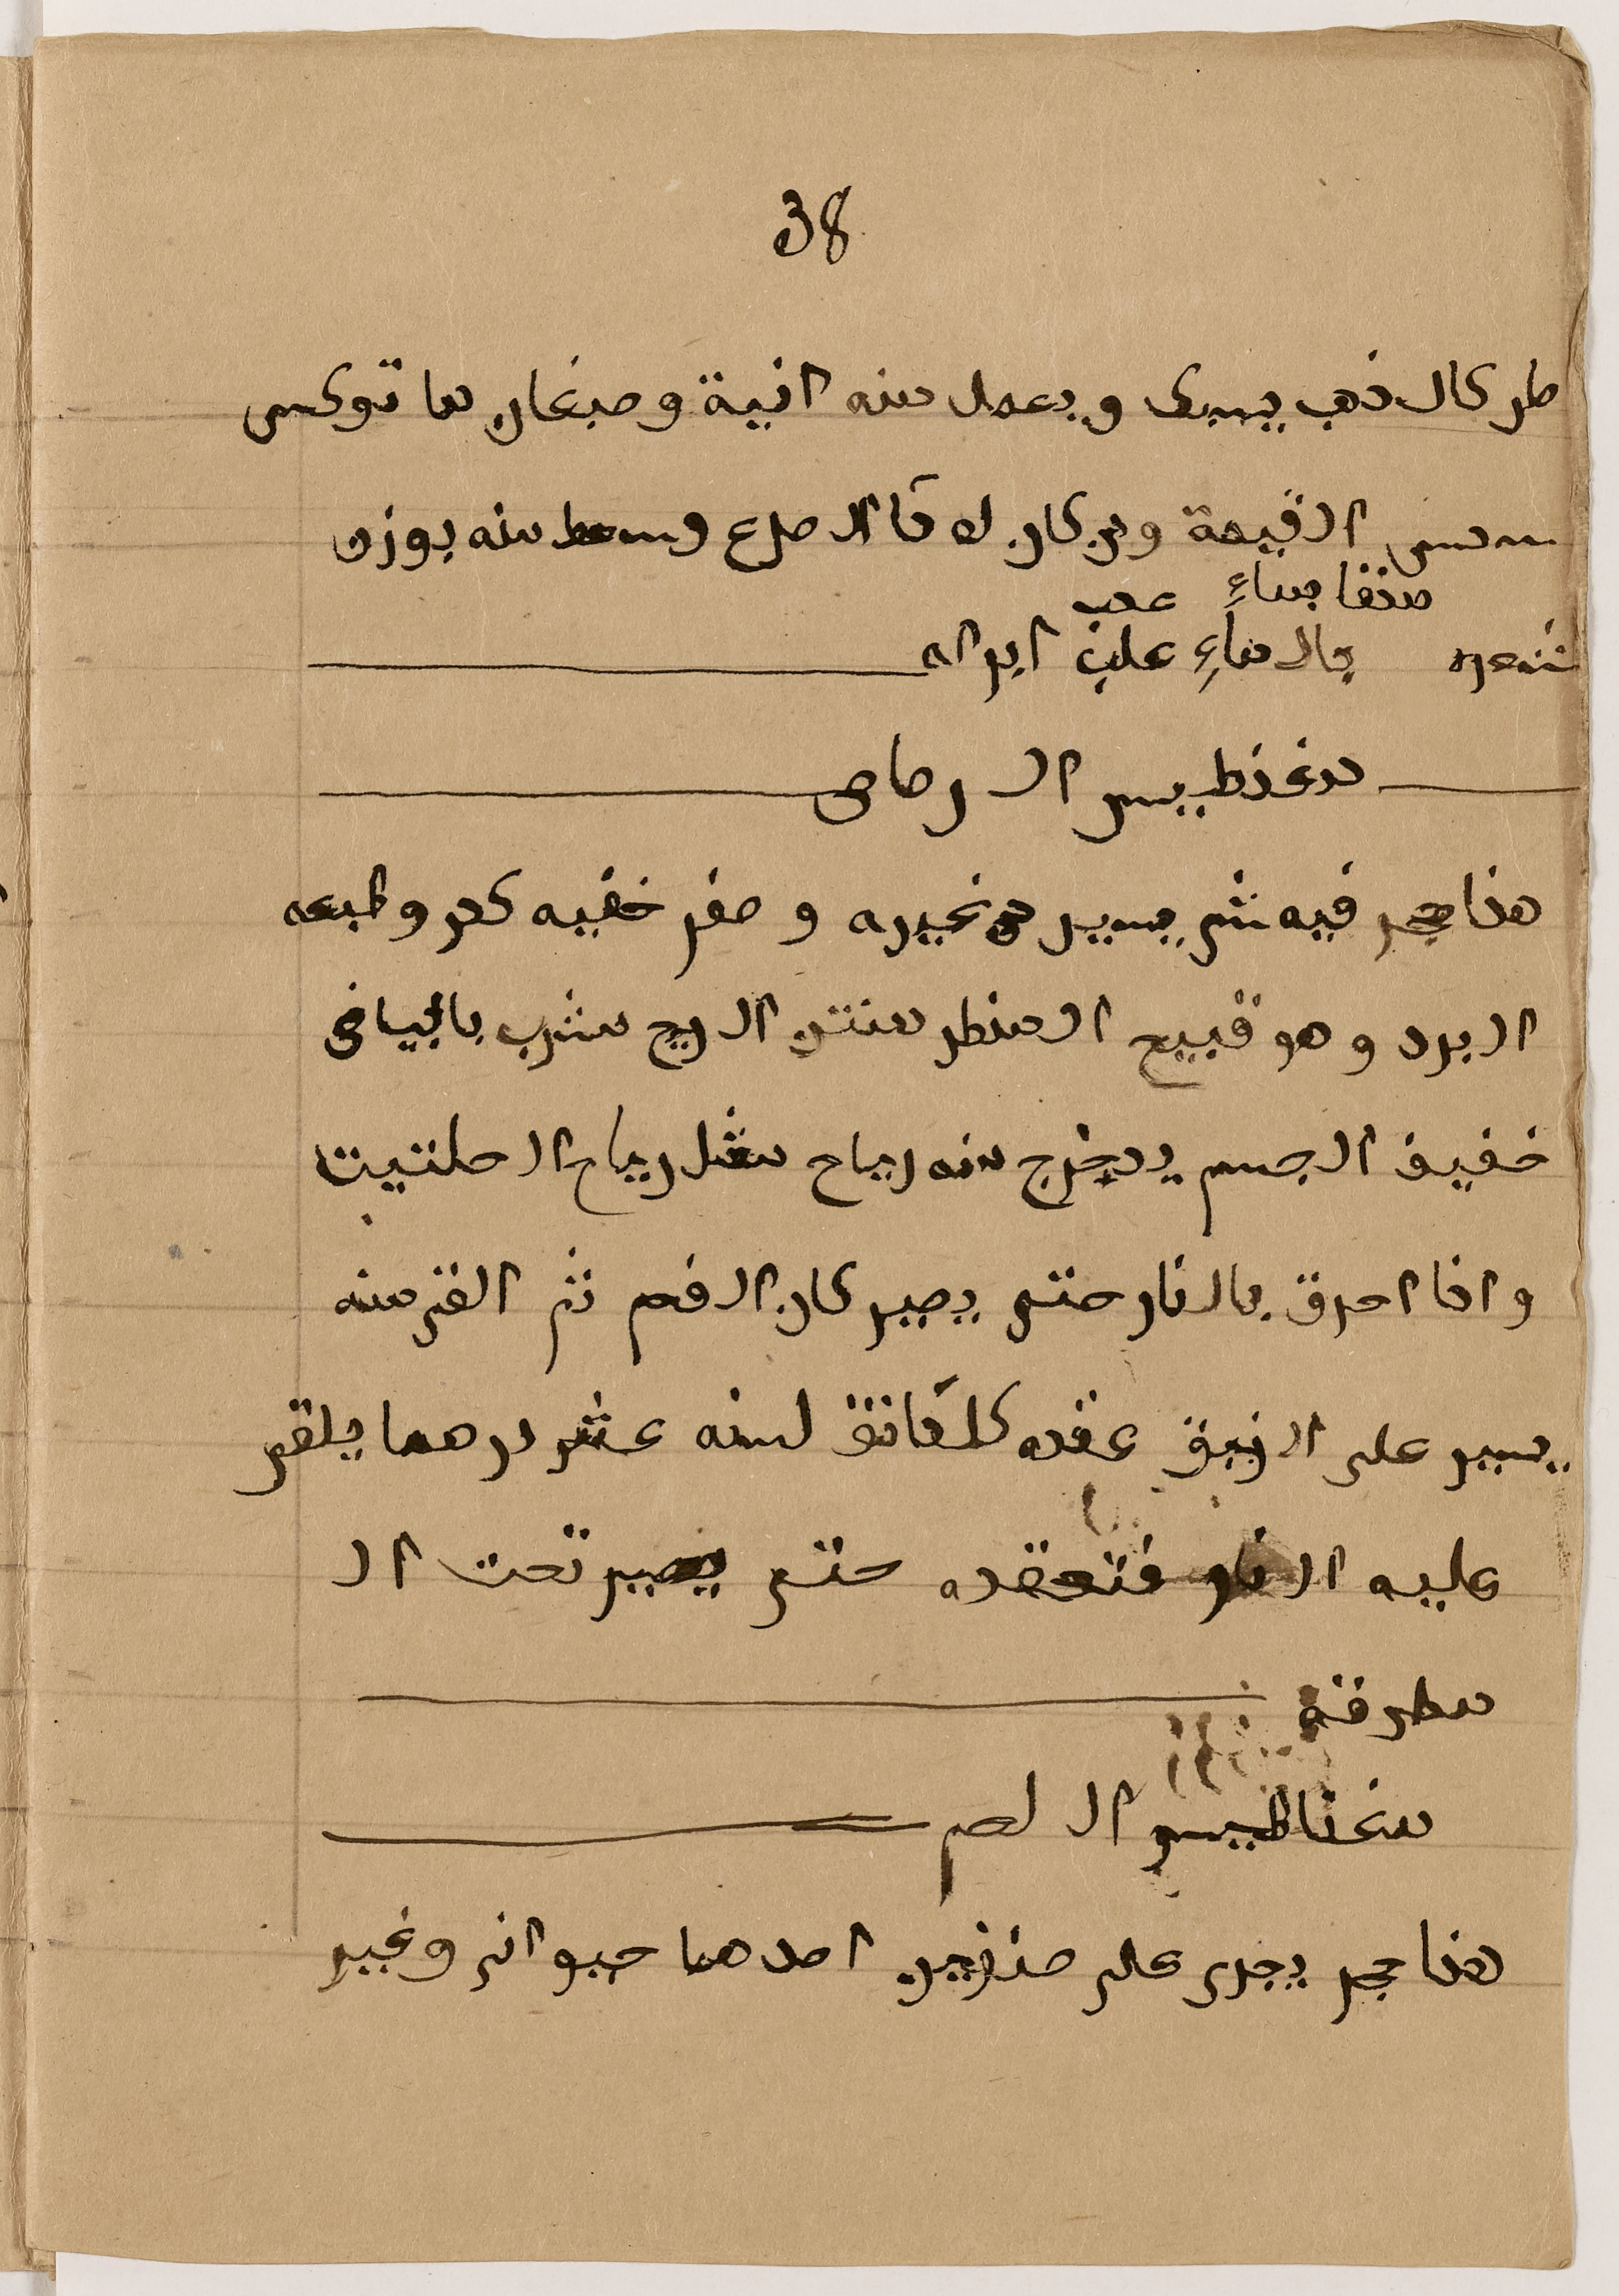 38
طر كالذهب يسبى ويعمل منه انية وصبغان ما توكس
سمس القيمة ومن كان به دا الصرع وسعط منه بوزن
صنفا بماءٍ عدب
شعيره بالماءِ علب ابراه
مغنطيس الرصاص
هذا حجر فيه شى يسير من غيره و صفر خفيه كدر وطبعه
البرد وهو قبيح المنظر منتن الريح مشرب بالبياض
خفيف الجسم يخرج منه رياح مثل رياح الحلتيت
واذا احرق بالنار حتى يصير كان الفحم ثم القى منه
يسير على الزيبق عقده كل دانق لسنه عشر درهما يلقى
عليه النار فتعقده حتى يصير تحت ال
مطرقة
مغناطيس اللحم
هذا حجر يجرى على صنفين احدهما حيوانى وغير